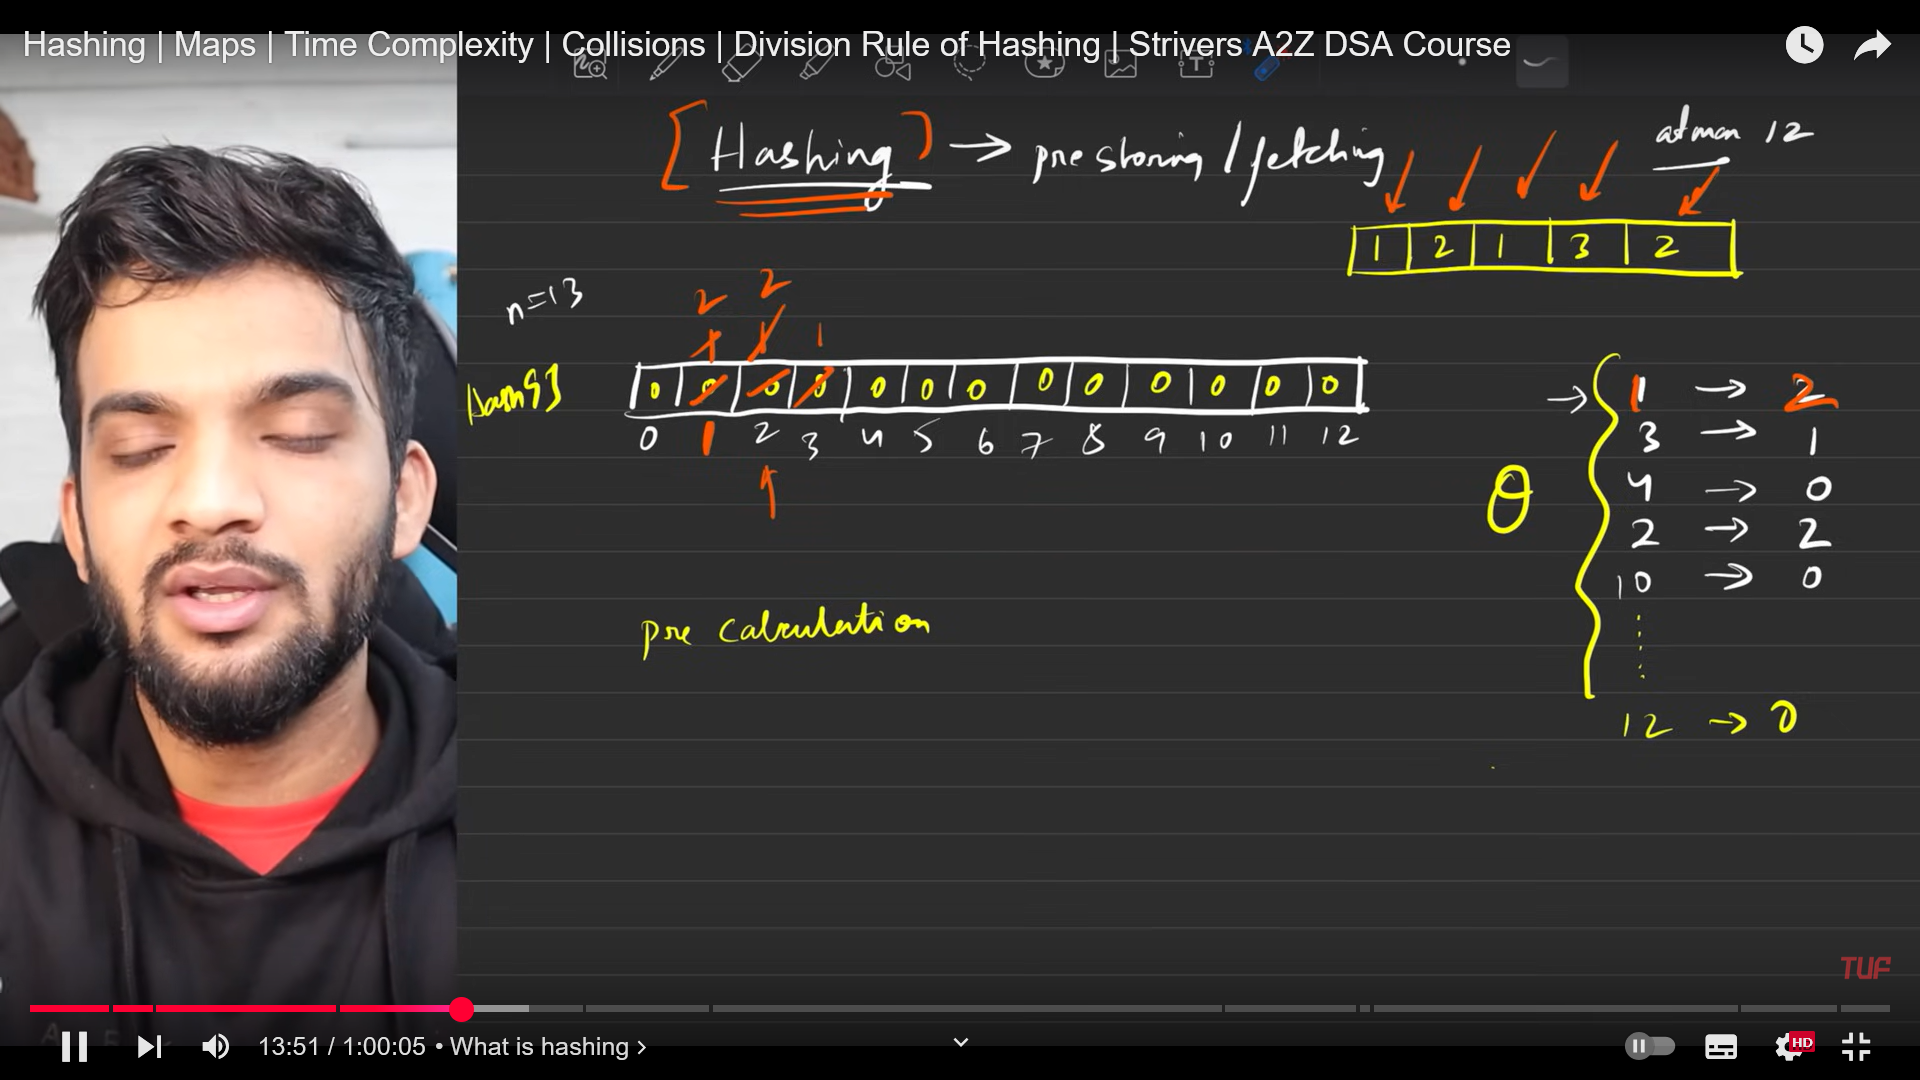 Hashing | Maps | Time Complexity | Collisions | Division Rule of Hashing | Strivers A2Z DSA Course
[Hashing] → pre storing / fetching
at max 12
1 2 1 3 2
n=13
2 2
1 1 1
0 0 0 0 0 0 0 0 0 0 0 0 0
0 1 2 3 4 5 6 7 8 9 10 11 12
1 → 2
3 → 1
4 → 0
2 → 2
10 → 0
12 → 0
pre calculation
TUF
13:51 / 1:00:05 • What is hashing ›
HD